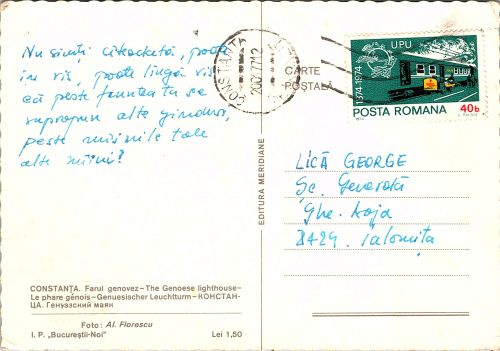 Nu simți câteodată, poate
în vis, poate lângă vis
că peste fruntea ta se
suprapun alte gânduri,
peste mâinile tale
alte mâini?
CONSTANȚA
CARTE
POȘTALĂ
1874-1974
UPU
POSTA ROMANA 40b
EDITURA MERIDIANE
LICĂ GEORGE
Șc. Generală
Ghe. Doja
8429. Ialomița
CONSTANȚA. Farul genovez–The Genoese lighthouse–
Le phare génois–Genuesischer Leuchtturm–КОНСТАН-
ЦА. Генуэзский маяк
Foto: Al. Florescu
I. P. „Bucureștii-Noi” Lei 1,50